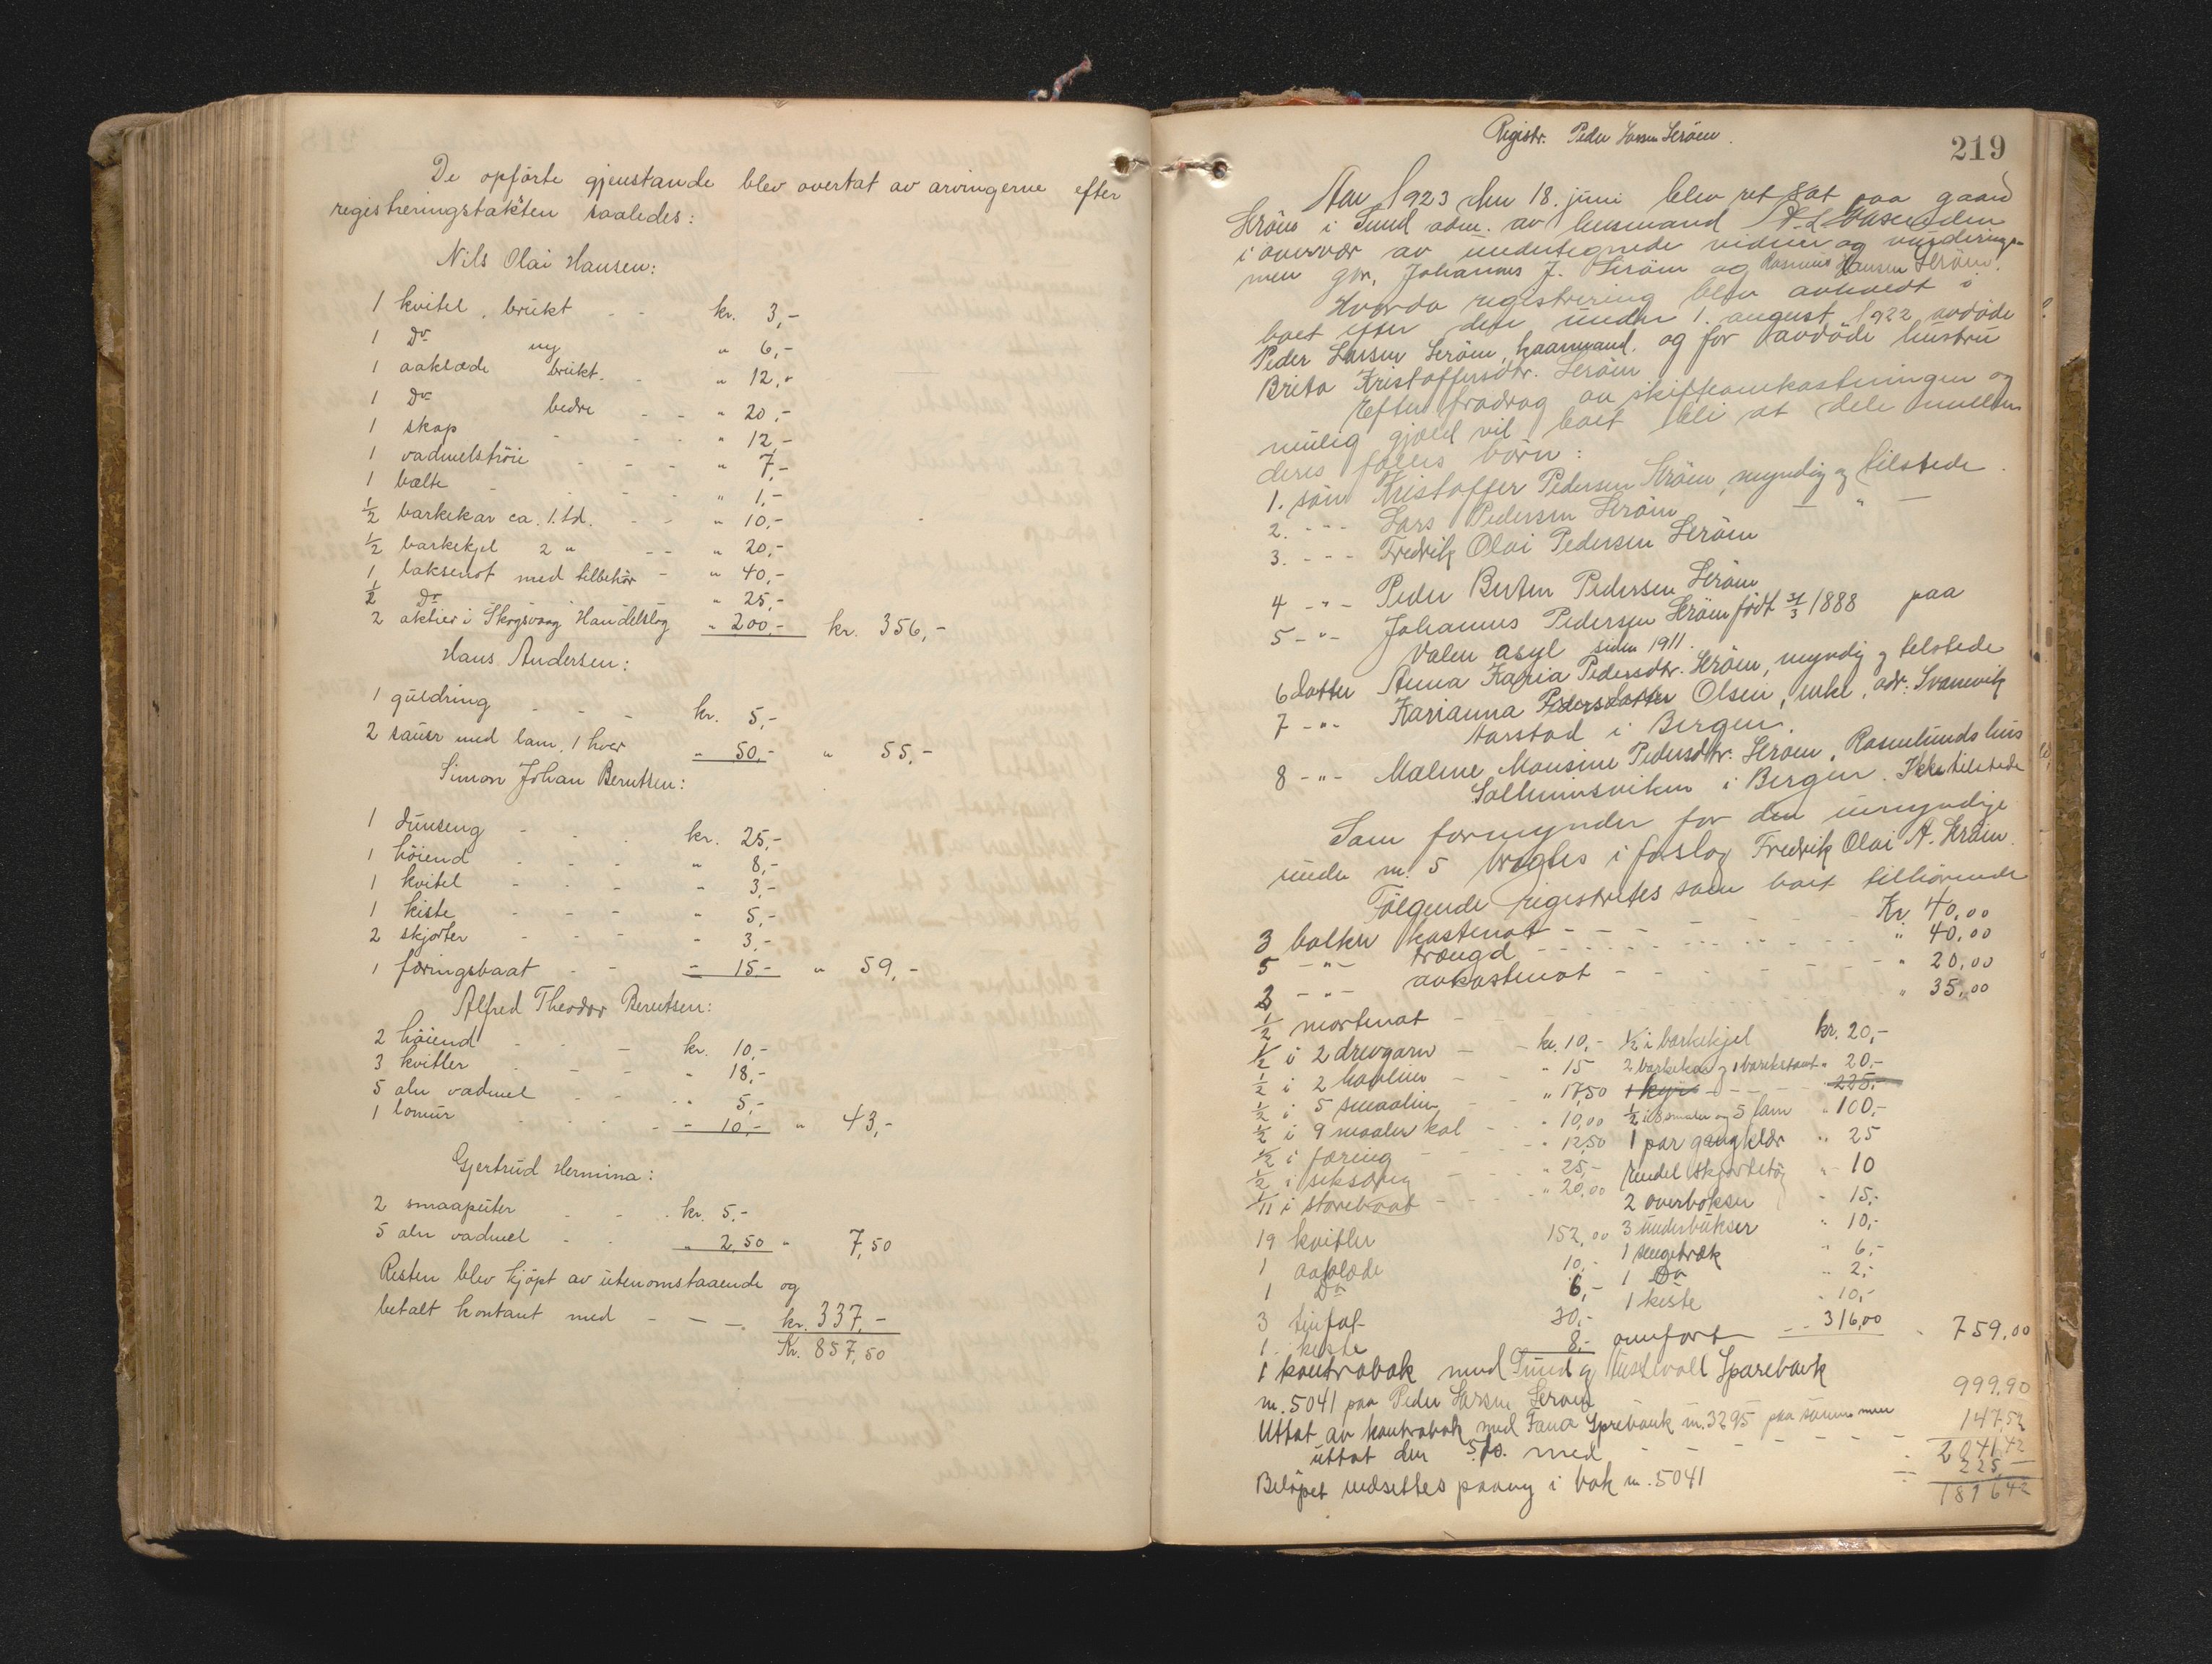 De opførte gjenstande blev overtat av arvingerne efter
registreringstaksten saaledes:
Nils Olai Hansen:
1 kvitel, brukt - - kr. 3,-
1 Do ny " 6,-
1 aaklæde brukt. - " 12,-
1 Do bedre - - " 20,-
1 skap - - - " 12,-
1 vadmelstrøie - - - " 7,-
1 bælte - - - - " 1,-
1/2 barkekar ca. 1. td. - - " 10,-
1/2 barkekjel 2 " - - " 20,-
1 laksenot med tilbehör - " 40,-
1/2 Do " 25,-
2 aktier i Skogsvaag Handelslag " 200,- kr. 356,-
Hans Andersen:
1 guldring - - - kr. 5,-
2 sauer med lam, 1 hver " 50,- " 55,-
Simon Johan Berntsen:
1 dunseng - - - kr. 25,-
1 höiend - - - " 8,-
1 kvitel - - - " 3,-
1 kiste - - - " 5,-
2 skjorter - - - " 3,-
1 færingsbaat - - " 15,- " 59,-
Alfred Theodor Berntsen:
2 höiend - - - kr. 10,-
3 kvitler - - - " 18,-
5 aln vadmel - - " 5,-
1 lomur - - - - " 10,- " 43,-
Gjertrud Hermina:
2 smaaputer - - kr. 5,-
5 aln vadmel - - " 2,50 " 7,50
Resten blev kjöpt av utenomstaaende og
betalt kontant med - - - kr. 337,-
Kr. 857,50
Registr. Peder Larsen Steröen.
219
Aar 1923 den 18. juni blev ret sat paa gaard
i Sund adm. av lensmand
i overvær av undertegnede vidner og vurderings-
men gbr. Johannes J. og Rasmus Hansen
Hvorda registrering blev avholdt i
boet efter den under 1. august 1922 avdöde
Peder Larsen kaarmand, og for avdöde hustru
Brita Kristoffersdtr.
Efter fradrag av skifteomkostningen og
mulig gjæld vil boet bli at dele mellem
deres fælles börn:
1. sön Kristoffer Pedersen myndig og tilstede.
2. - - - Lars Pedersen - " -
3. - - - Fredrik Olai Pedersen
4 - " - Peder Berten Pedersen
5 - " - Johannes Pedersen född 31/3 1888 paa
Valen asyl siden 1911.
6 datter Anna Karia Pedersdtr. myndig og tilstede
7 - " - Karianna Pedersdatter Olsen, enke, adr: Svanevik
Aarstad i Bergen.
8 - " - Malene Monsine Pedersdtr. Rosenlunds hus
Solheimsviken i Bergen. Ikke tilstede
Som formynder for den umyndige
under nr. 5 vægles i forslag Fredrik Olai A.
Fölgende registrertes som boet tilhörende
3 bolker kastenot - - - Kr. 40,00
5 - " - trængd - - - " 40,00
2 - " - avkastenot - - - " 20,00
1/2 mortenot - - - " 35,00
1/2 i 2 drevgarn - kr. 10,- 1/2 i barkekjel kr. 20,-
1/2 i 2 havliner - - " 15 2 barkekar og 1 " 20,-
1/2 i 5 smaaliner - - " 17,50 1 kyr - - 225,-
1/2 i 9 maaler kol - - " 10,00 1/2 i 8 smaler og 5 lam " 100,-
1/2 i færing - - " 12,50 1 par gangklær " 25
1/2 i seksæring - - " 25,- Endel skjortetöi " 10
1/11 i storebaat - - " 20,00 2 overbokser " 15,-
19 kvitler 152,00 3 underbukser " 10,-
1 aaklæde 10,- 1 sengetræk " 6,-
1 Do 6,- 1 Do " 2,-
3 tinfat 30,- 1 kiste " 10,-
1 kiste 8,- omfört - - 316,00 " 759,00
1 kontrabok med Sund og Austevoll Sparebank
nr. 5041 paa Peder Larsen 999,90
Uttat av kontrabok med Fana Sprebank nr. 3295 paa samme mann 147,52
uttat den med - - - - 2041,42
225,-
Belöpet nedsettes paany i bok nr. 5041 1816,42